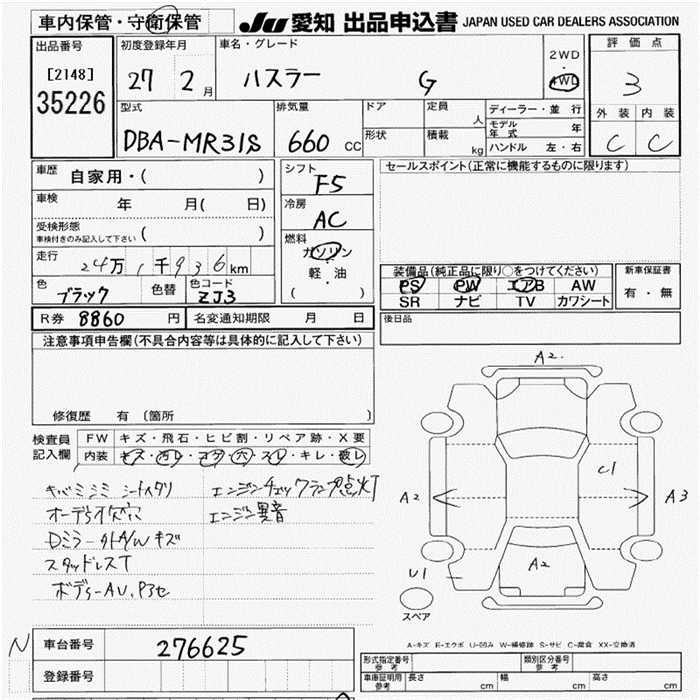 車内保管・守衛保管
JU 愛知 出品申込書 JAPAN USED CAR DEALERS ASSOCIATION
出品番号
[2148]
35226
初度登録年月
27 2月
車名・グレード
ハスラー G
2WD
・
4WD
評価点
3
外装 内装
C C
型式
DBA-MR31S
排気量
660 CC
ドア
形状
定員 人
積載 kg
ディーラー・並行
モデル年式 年
ハンドル 左・右
車歴 自家用・( )
車検 年 月( 日)
受検形態
車検付きのみ記入して下さい ( )
走行 24万1千936km
色 ブラック 色替 色コード ZJ3
シフト F5
冷房 AC
燃料
ガソリン
軽・油
( )
セールスポイント(正常に機能するものに限ります)
装備品(純正品に限り○をつけてください)
PS PW エアB AW
SR ナビ TV カワシート
新車保証書
有・無
R券 8860円 名変通知期限 月 日
後日品
注意事項申告欄(不具合内容等は具体的に記入して下さい)
修復歴 有 〔箇所 〕
検査員記入欄
FW キズ・飛石・ヒビ割・リペア跡・X要
内装 キズ・汚レ・コゲ・穴・スレ・キレ・破レ
シートヘタリ
エンジンチェックランプ点灯
エンジン異音
Dミラー外A/Wキズ
スタッドレスT
A2
A2
C1
A3
A2
U1
スペア
A-キズ E-エクボ U-凹み W-補修跡 S-サビ C-腐食 XX-交換済
N
車台番号 276625
登録番号
形式指定番号 参考
類別区分番号 参考
車庫証明用 参考 長さ cm 幅 cm 高さ cm